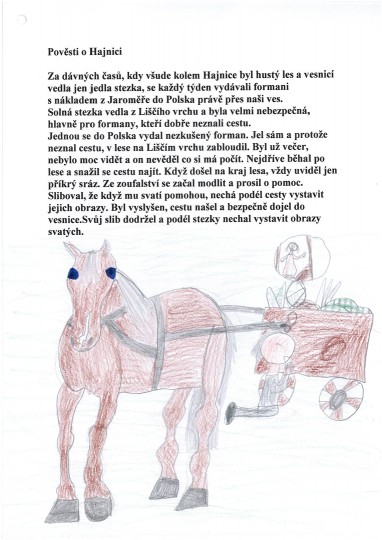 Pověsti o Hajnici
Za dávných časů, kdy všude kolem Hajnice byl hustý les a vesnicí
vedla jen jedla stezka, se každý týden vydávali formani
s nákladem z Jaroměře do Polska právě přes naši ves.
Solná stezka vedla z Liščího vrchu a byla velmi nebezpečná,
hlavně pro formany, kteří dobře neznali cestu.
Jednou se do Polska vydal nezkušený forman. Jel sám a protože
neznal cestu, v lese na Liščím vrchu zabloudil. Byl už večer,
nebylo moc vidět a on nevěděl co si má počít. Nejdříve běhal po
lese a snažil se cestu najít. Když došel na kraj lesa, vždy uviděl jen
příkrý sráz. Ze zoufalství se začal modlit a prosil o pomoc.
Sliboval, že když mu svatí pomohou, nechá podél cesty vystavit
jejich obrazy. Byl vyslyšen, cestu našel a bezpečně dojel do
vesnice.Svůj slib dodržel a podél stezky nechal vystavit obrazy
svatých.